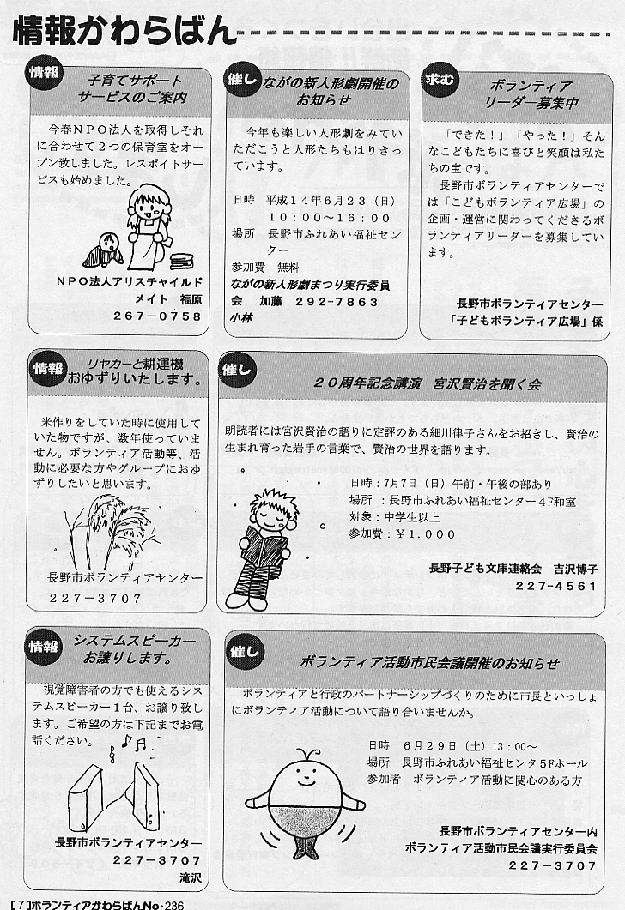 情報かわらばん
情報
子育てサポート
サービスのご案内
今春NPO法人を取得しそれ
に合わせて2つの保育室をオー
プン致しました。レスポイトサー
ビスも始めました。
NPO法人アリスチャイルド
メイト 福原
267-0758
催し
ながの新人形劇開催の
お知らせ
今年も楽しい人形劇をみてい
ただこうと人形たちもはりきっ
ています。
日時 平成14年6月23(日)
10:00~15:00
場所 長野市ふれあい福祉セン
ター
参加費 無料
ながの新人形劇まつり実行委員
会 加藤 292-7863
小林
求む
ボランティア
リーダー募集中
「できた!」「やった!」そん
なこどもたちに喜びと笑顔は私た
ちの宝です。
長野市ボランティアセンターで
は「こどもボランティア広場」の
企画・運営に関わってくださるボ
ランティアリーダーを募集してい
ます。
長野市ボランティアセンター
「子どもボランティア広場」係
情報
リヤカーと耕運機
おゆずりいたします。
米作りをしていた時に使用して
いた物ですが、数年使っていま
せん。ボランティア活動等、活
動に必要な方やグループにおゆ
ずりしたいと思います。
長野市ボランティアセンター
227-3707
催し
20周年記念講演 宮沢賢治を聞く会
朗読者には宮沢賢治の語りに定評のある細川律子さんをお招きし、賢治の
生まれ育った岩手の言葉で、賢治の世界を語ります。
日時:7月7日(日)午前・午後の部あり
場所:長野市ふれあい福祉センター4F和室
対象:中学生以上
参加費:¥1.000
長野子ども文庫連絡会 吉沢博子
227-4561
情報
システムスピーカー
お譲りします。
視覚障害者の方でも使えるシス
テムスピーカー1台、お譲り致し
ます。ご希望の方は下記までお電
話ください。
長野市ボランティアセンター
227-3707
滝沢
催し
ボランティア活動市民会議開催のお知らせ
ボランティアと行政のパートナーシップづくりのために市長といっしょ
にボランティア活動について語り合いませんか。
日時 6月29日(土) 3:00~
場所 長野市ふれあい福祉センタ5Fホール
参加者 ボランティア活動に関心のある方
長野市ボランティアセンター内
ボランティア活動市民会議実行委員会
227-3707
[7]ボランティアかわらばんNo・236